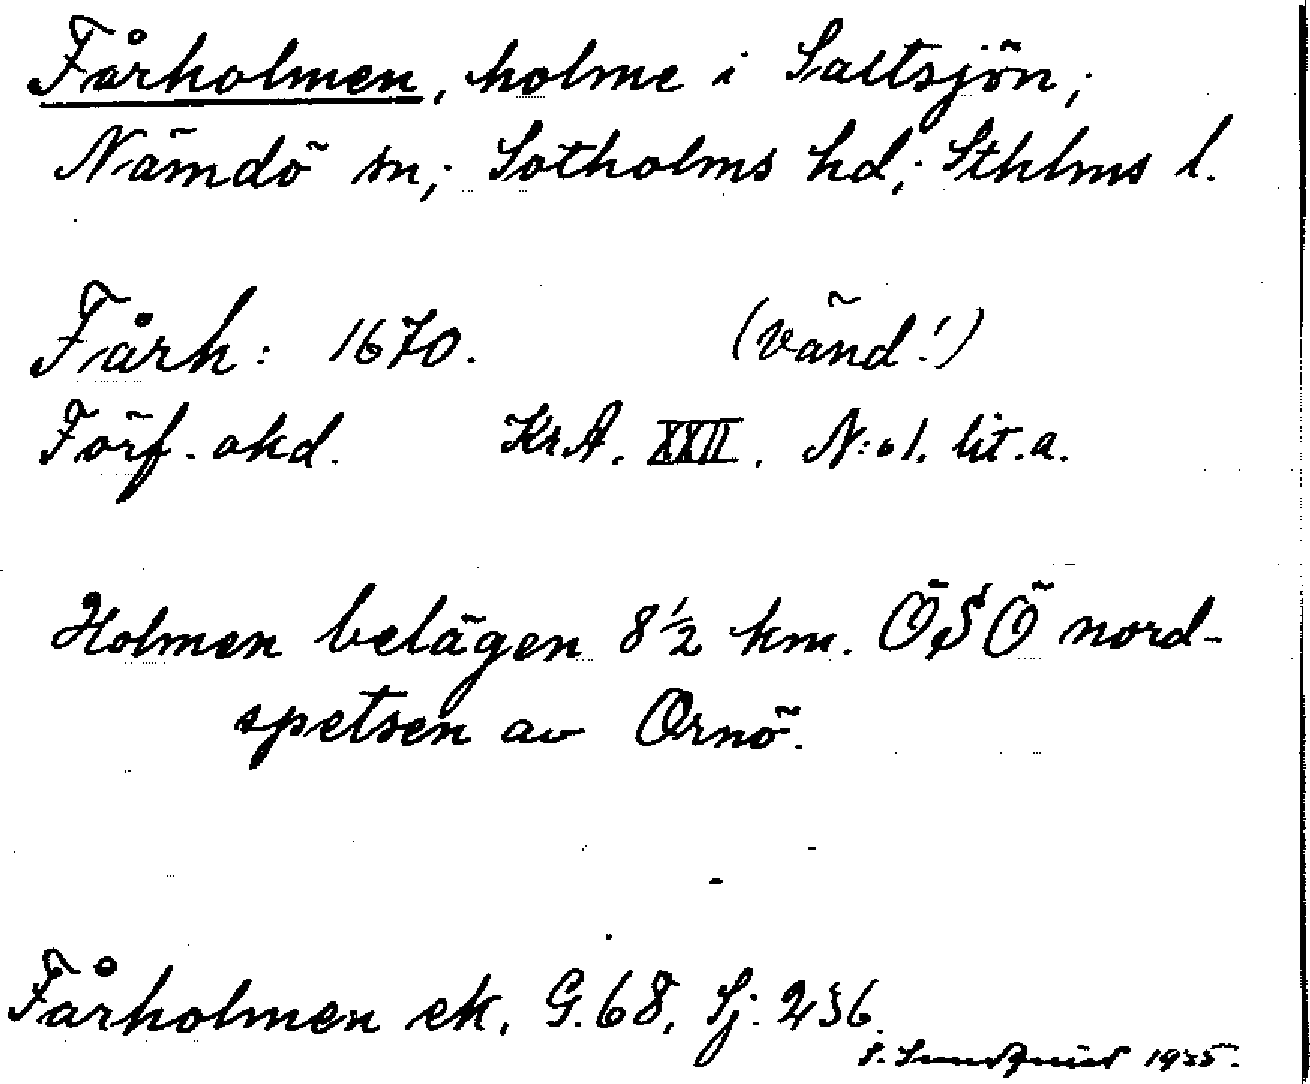 Fårholmen, holme i Saltsjön;
Nämdö sn; Sotholms hd; Sthlms l.
Fårh: 1670. (vänd!)
Förf. okd. Kr.A. XXII. N:o 1. lit.a.
Holmen belägen 8 1/2 km. ÖSÖ nord-
spetsen av Ornö.
Fårholmen ek. G.68, Sj: 236.
S. Lundquist 1935.